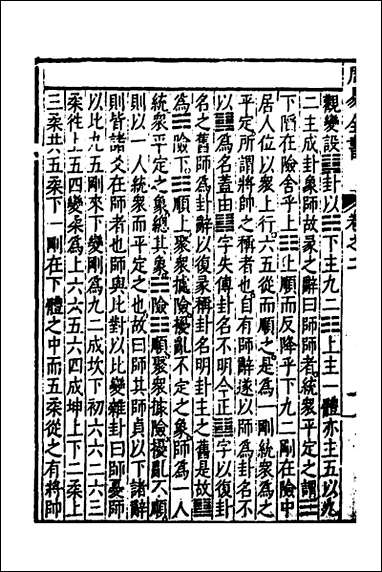 周易全書 卷之二
觀變設䷆卦以☵下主九二☷上主一體亦主五以九
二主成卦象師故彖之辭曰師師者統衆平定之謂☵
下陷在險舍乎上☷上順而反降乎下九二剛在險中
居人位以衆上行六五從而順之是為一剛統衆為之
平定所謂將帥之稱者也自有師辭遂以師為卦名不
以䷆為名蓋由䷆字失傳卦名不明今正䷆字以復卦
名之舊師為卦辭以復彖稱卦名明卦主之舊是故䷆
為☵險下☷順上聚衆㨿險擾亂不定之象師為一人
統衆平定之象總其象☵險☷順聚衆㨿險擾亂不順
則以一人統衆而平定之也故曰師其師貞以下諸辭
則皆諸爻在師者也師與比對以比變雜卦曰師憂師
以比九五剛來下變剛為九二成坎下初六六二六三
柔徃上五四變柔為上六六五六四成坤上下二柔上
三柔共五柔下一剛在下體之中而五柔從之有將帥